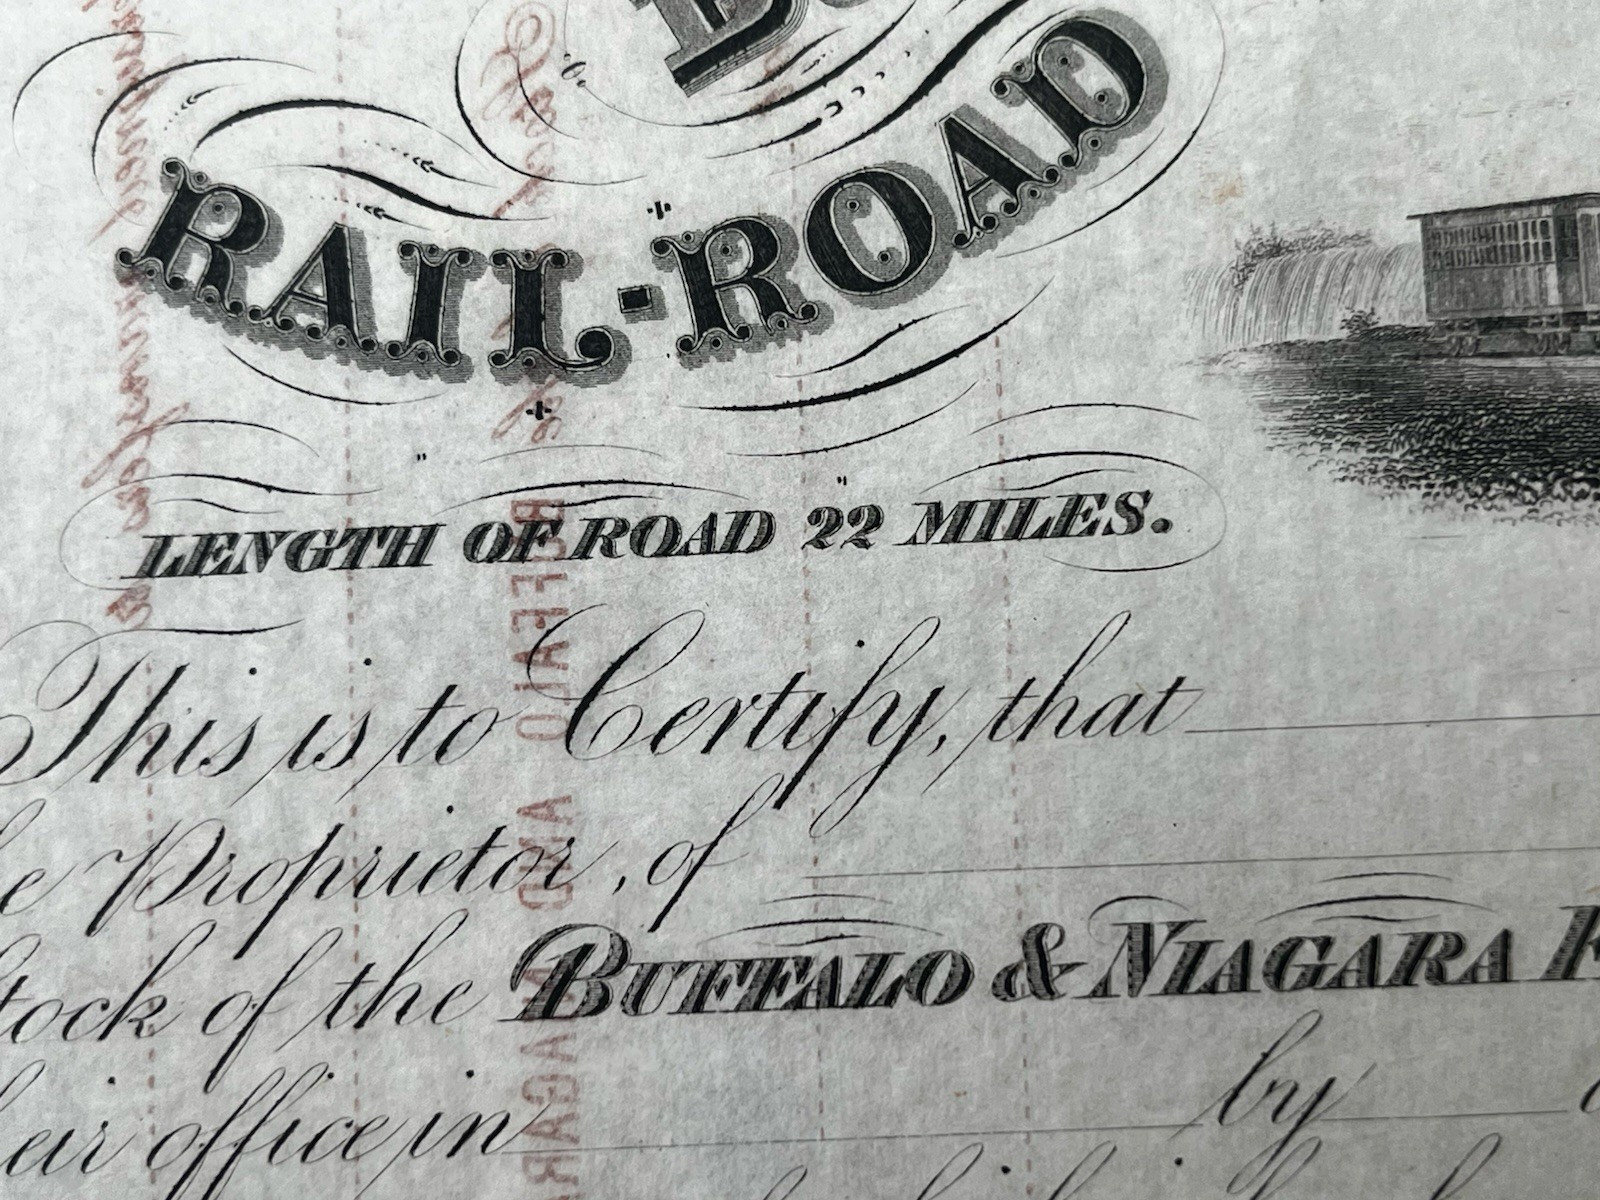 RAIL-ROAD
LENGTH OF ROAD 22 MILES.
This is to Certify, that
Proprietor, of
of the BUFFALO & NIAGARA
office in by
BUFFALO AND NIAGAR